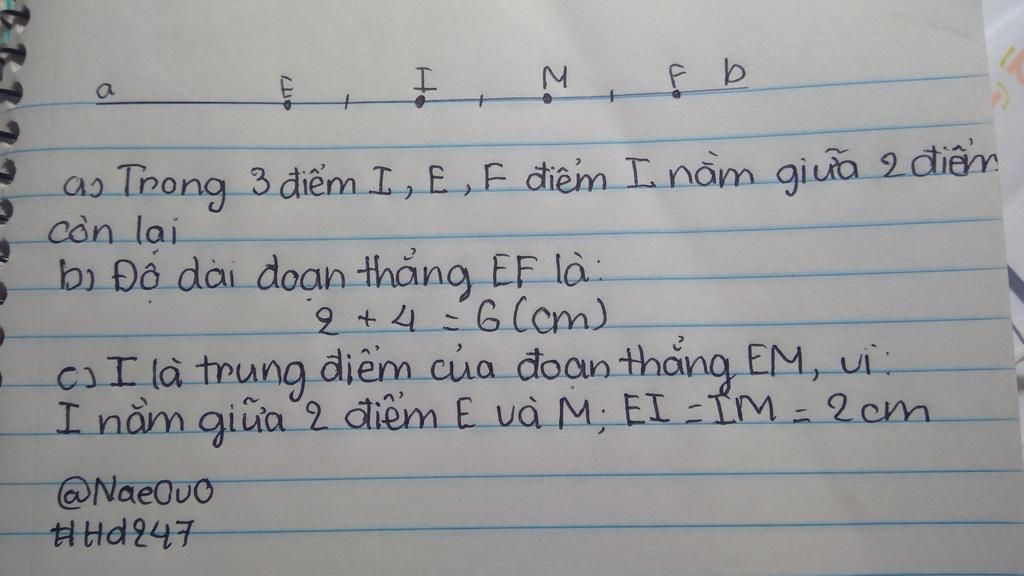 a E I M F b
a) Trong 3 điểm I, E, F điểm I nằm giữa 2 điểm
còn lại
b) Độ dài đoạn thẳng EF là:
2 + 4 = 6 (cm)
c) I là trung điểm của đoạn thẳng EM, vì:
I nằm giữa 2 điểm E và M; EI = IM = 2cm
@NaeOuO
#Hd247